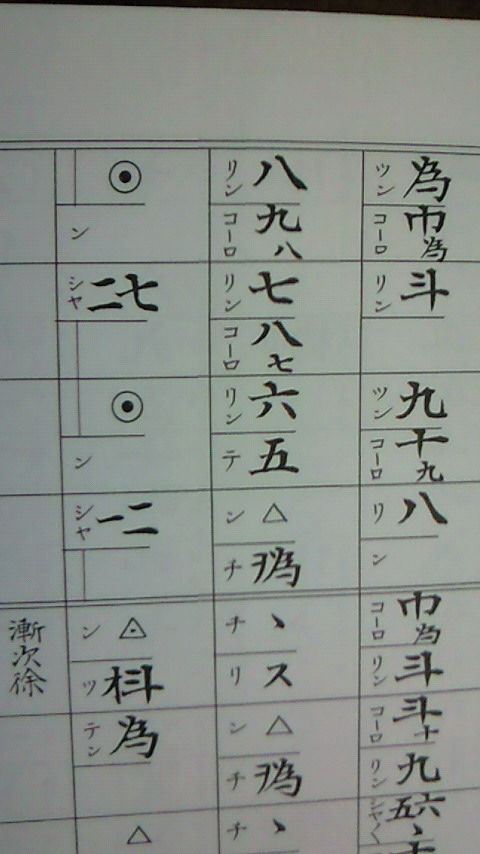 ツン 為
コーロ 巾為
リン 斗
ツン 九
コーロ 十九
リ 八
ン
コーロ 巾為
リン 斗
コーロ 斗十
リン 九
シヤ 五六
リン 八
コーロ 九八
リン 七
コーロ 八七
リン 六
テ 五
ン △
チ
チ ヽ
リ ス
ン △
チ
チ ヽ
◉
ン
シャ 二七
◉
ン
シャ 一二
ン
ツ
テン 為
△
漸次徐